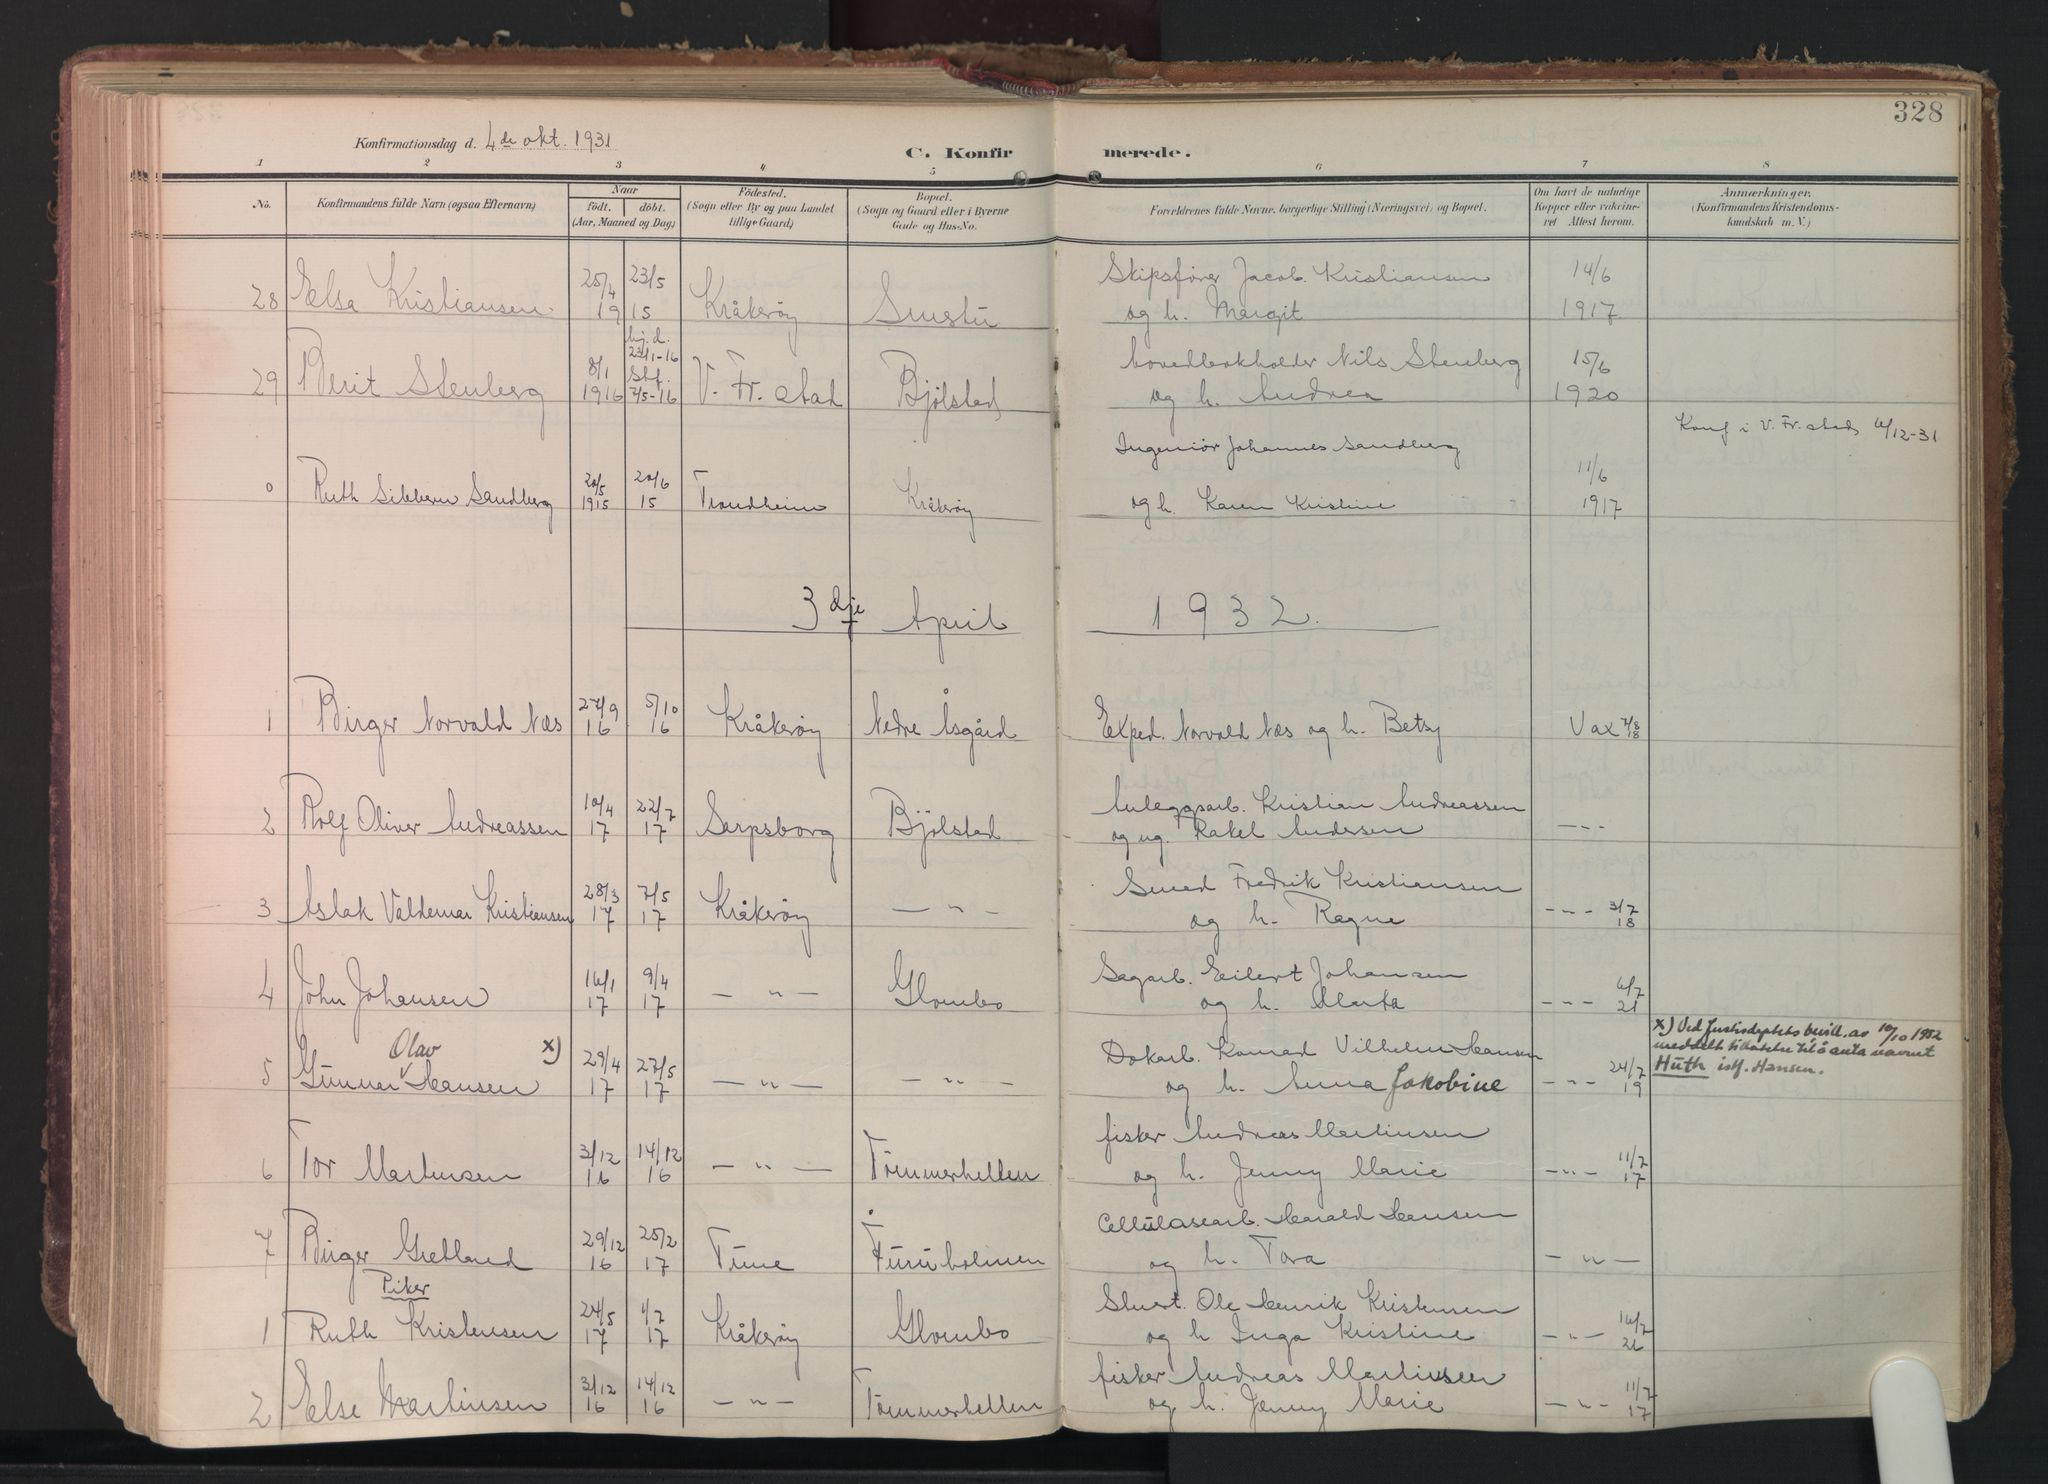 328
Konfirmationsdag d. 4de okt. 1931
C. Konfirmerede.
1 2 3 4 5 6 7 8
No. Konfirmandens fulde Navn (ogsaa Efternavn) Naar födt. döbt. (Aar, Maaned og Dag) Födested. (Sogn eller By og paa Landet tillige Gaard) Bopæl. (Sogn og Gaard eller i Byerne Gade og Hus-No. Forældrenes fulde Navne, borgerlige Stilling (Næringsvei) og Bopæl. Om havt de naturlige Kopper eller vakcineret Attest herom. Anmærkninger. (Konfirmandens Kristendomskundskab m. V.)
25/4 23/5 Skipsfører Jacob Kristiansen 14/6
28 Elsa Kristiansen 19 15 Kråkerøy Smestu og h. Margit 1917
hj. d. 23/1-16
8/1 Stf. hovedbokholder Nils Stenberg 15/6
29 Berit Stenberg 1916 7/5-16 V. Fr.stad Bjölstad og h. Andrea 1920
Konf i V. Fr.stad 6/12-31
Ingeniör Johannes Sandberg
20/5 20/6 11/6
0 Ruth Sibbern Sandberg 1915 15 Trondheim Kråkerøy og h. Karen Kristine 1917
3dje April 1932.
27/9 5/10
1 Birger Norvald Næs 16 16 Kråkerøy Nedre Åsgård Exped. Norvald Næs og h. Betsy Vax 7/8 18
10/4 22/7 Anleggsarb. Kristian Andreassen
2 Rolf Oliver Andreassen 17 17 Sarpsborg Bjölstad og ug. Rakel Andersen - - -
28/3 7/5 Smed Fredrik Kristiansen
3 Aslak Valdemar Kristiansen 17 17 Kråkerøy — „ — og h. Ragne - „ - 3/7 18
16/1 9/4 Sagarb. Eilert Johansen
4 John Johansen 17 17 — „ — Glombo og h. Marta - „ - 6/7 21
x) Ved Justisdeptets bevill. av 10/10 1952
meddelt tillatelse til å anta navnet
Huth istf. Hansen.
Olav x) 29/4 27/5 Dokarb. Konrad Vilhelm Hansen
5 Gunnar Hansen 17 17 — „ — — „ — og h. Anna Jakobine - „ - 24/7 19
3/12 14/12 fisker Andreas Martinsen
6 Tor Martinsen 16 16 — „ — Tömmerhellen og h. Jenny Marie - „ - 11/7 17
29/12 25/2 Cellulosearb. Harald Hansen
7 Birger Gretland 16 17 Tune Furuholmen og h. Tora — „ —
Piker
24/5 1/7 Stuert. Ole Henrik Kristensen
1 Ruth Kristensen 17 17 Kråkerøy Glombo og h Inga Kristine - „ - 16/7 21
3/12 14/12 fisker Andreas Martinsen
2 Else Martinsen 16 16 — „ — Tömmerhellen og h. Jenny Marie - „ - 11/7 17